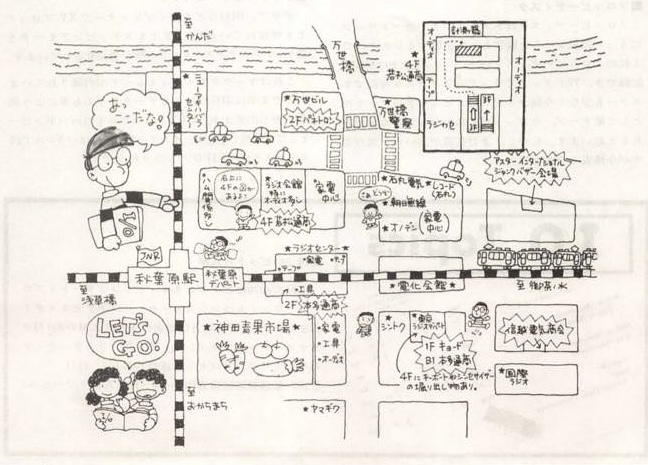 至
かんだ
万世橋
計測器
オーディオ
オーディオ
テープ
ラジカセ
1F
3F
★4F
若松通商
★ニューアキハバラセンター
★万世ビル
2Fパットロン
★万世橋警察
あっ
ここだな!
アスターインターナショナル
ジャンクバザー会場
右上に
4Fの図が
あるよう
★ラジオ会館
特に
オーディオ多し
4F若松通商
★家電
中心
★石丸電気
★レコード
(石丸)
★朝日無線
★オノデン
(家電
中心)
I/O
JNR
秋葉原駅
秋葉原
デパート
★ラジオセンター★
★家電
★テープ
★工具
2F本多通商
★電化会館★
至
浅草橋
至 御茶ノ水
LET'S
GO!
★神田青果市場★
★家電
★工具
★オーディオ
★シントク
★東京
ラジオデパート
1F キョードー
B1 本多通商
4Fにキーボードやシンセサイザー
の掘り出し物あり。
信越電気商会
★国際
ラジオ
I/O
至
おかちまち
★ヤマギワ